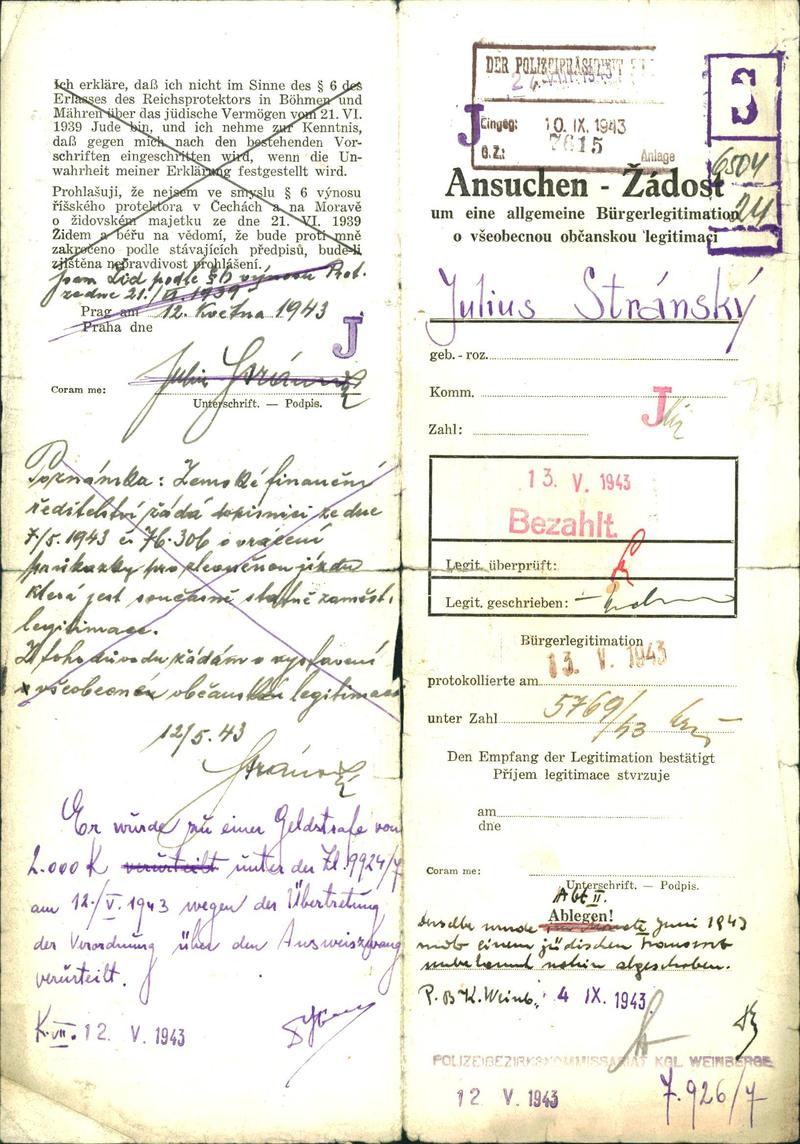 Ich erkläre, daß ich nicht im Sinne des § 6 des
Erlasses des Reichsprotektors in Böhmen und
Mähren über das jüdische Vermögen vom 21. VI.
1939 Jude bin, und ich nehme zur Kenntnis,
daß gegen mich nach den bestehenden Vor-
schriften eingeschritten wird, wenn die Un-
wahrheit meiner Erklärung festgestellt wird.
Prohlašuji, že nejsem ve smyslu § 6 výnosu
říšského protektora v Čechách a na Moravě
o židovském majetku ze dne 21. VI. 1939
Židem a béřu na vědomí, že bude proti mně
zakročeno podle stávajících předpisů, bude-li
zjištěna nepravdivost prohlášení.
jsem Žid podle § 6 výnosu Prot.
ze dne 21./VI. 1939
Prag am
Praha dne
12. května 1943
J
Coram me:
Unterschrift. — Podpis.
Poznámka: Zemské finanční
ředitelství žádá dopisnicí ze dne
7/5. 1943 č 76.306 o vrácení
průkazky pro zlevněnou jízdu
která jest současně státně zaměst.
legitimace.
Z toho důvodu žádám o vystavení
všeobecné občanské legitimace
12/5. 43
Stránský
Er wurde zu einer Geldstrafe von
2.000 K verurteilt unter der Zl. 9924/7
am 12./V. 1943 wegen der Übertretung
der Verordnung über den Ausweiszwang
verurteilt.
K.VII. 12. V. 1943
DER POLIZEIPRÄSIDENT
Eingeg: 10. IX. 1943
G.Z.: 7615
Anlage
J
6504
24
Ansuchen - Žádost
um eine allgemeine Bürgerlegitimation
o všeobecnou občanskou legitimaci
Julius Stránský
geb. - roz.
Komm.
J
Zahl:
13. V. 1943
Bezahlt.
Legit. überprüft:
Legit. geschrieben:
Bürgerlegitimation
13. V. 1943
protokollierte am
unter Zahl 5769/43
Den Empfang der Legitimation bestätigt
Příjem legitimace stvrzuje
am
dne
Coram me:
Unterschrift. — Podpis.
Abt II.
Ablegen!
Derselbe wurde im Monate Juni 1943
mit einem jüdischen Transport
unbekannt wohin abgeschoben.
P.B.K. Weinb., 4 IX. 1943
POLIZEIBEZIRKSKOMMISSARIAT KGL WEINBERGE
12 V. 1943
7.926/7